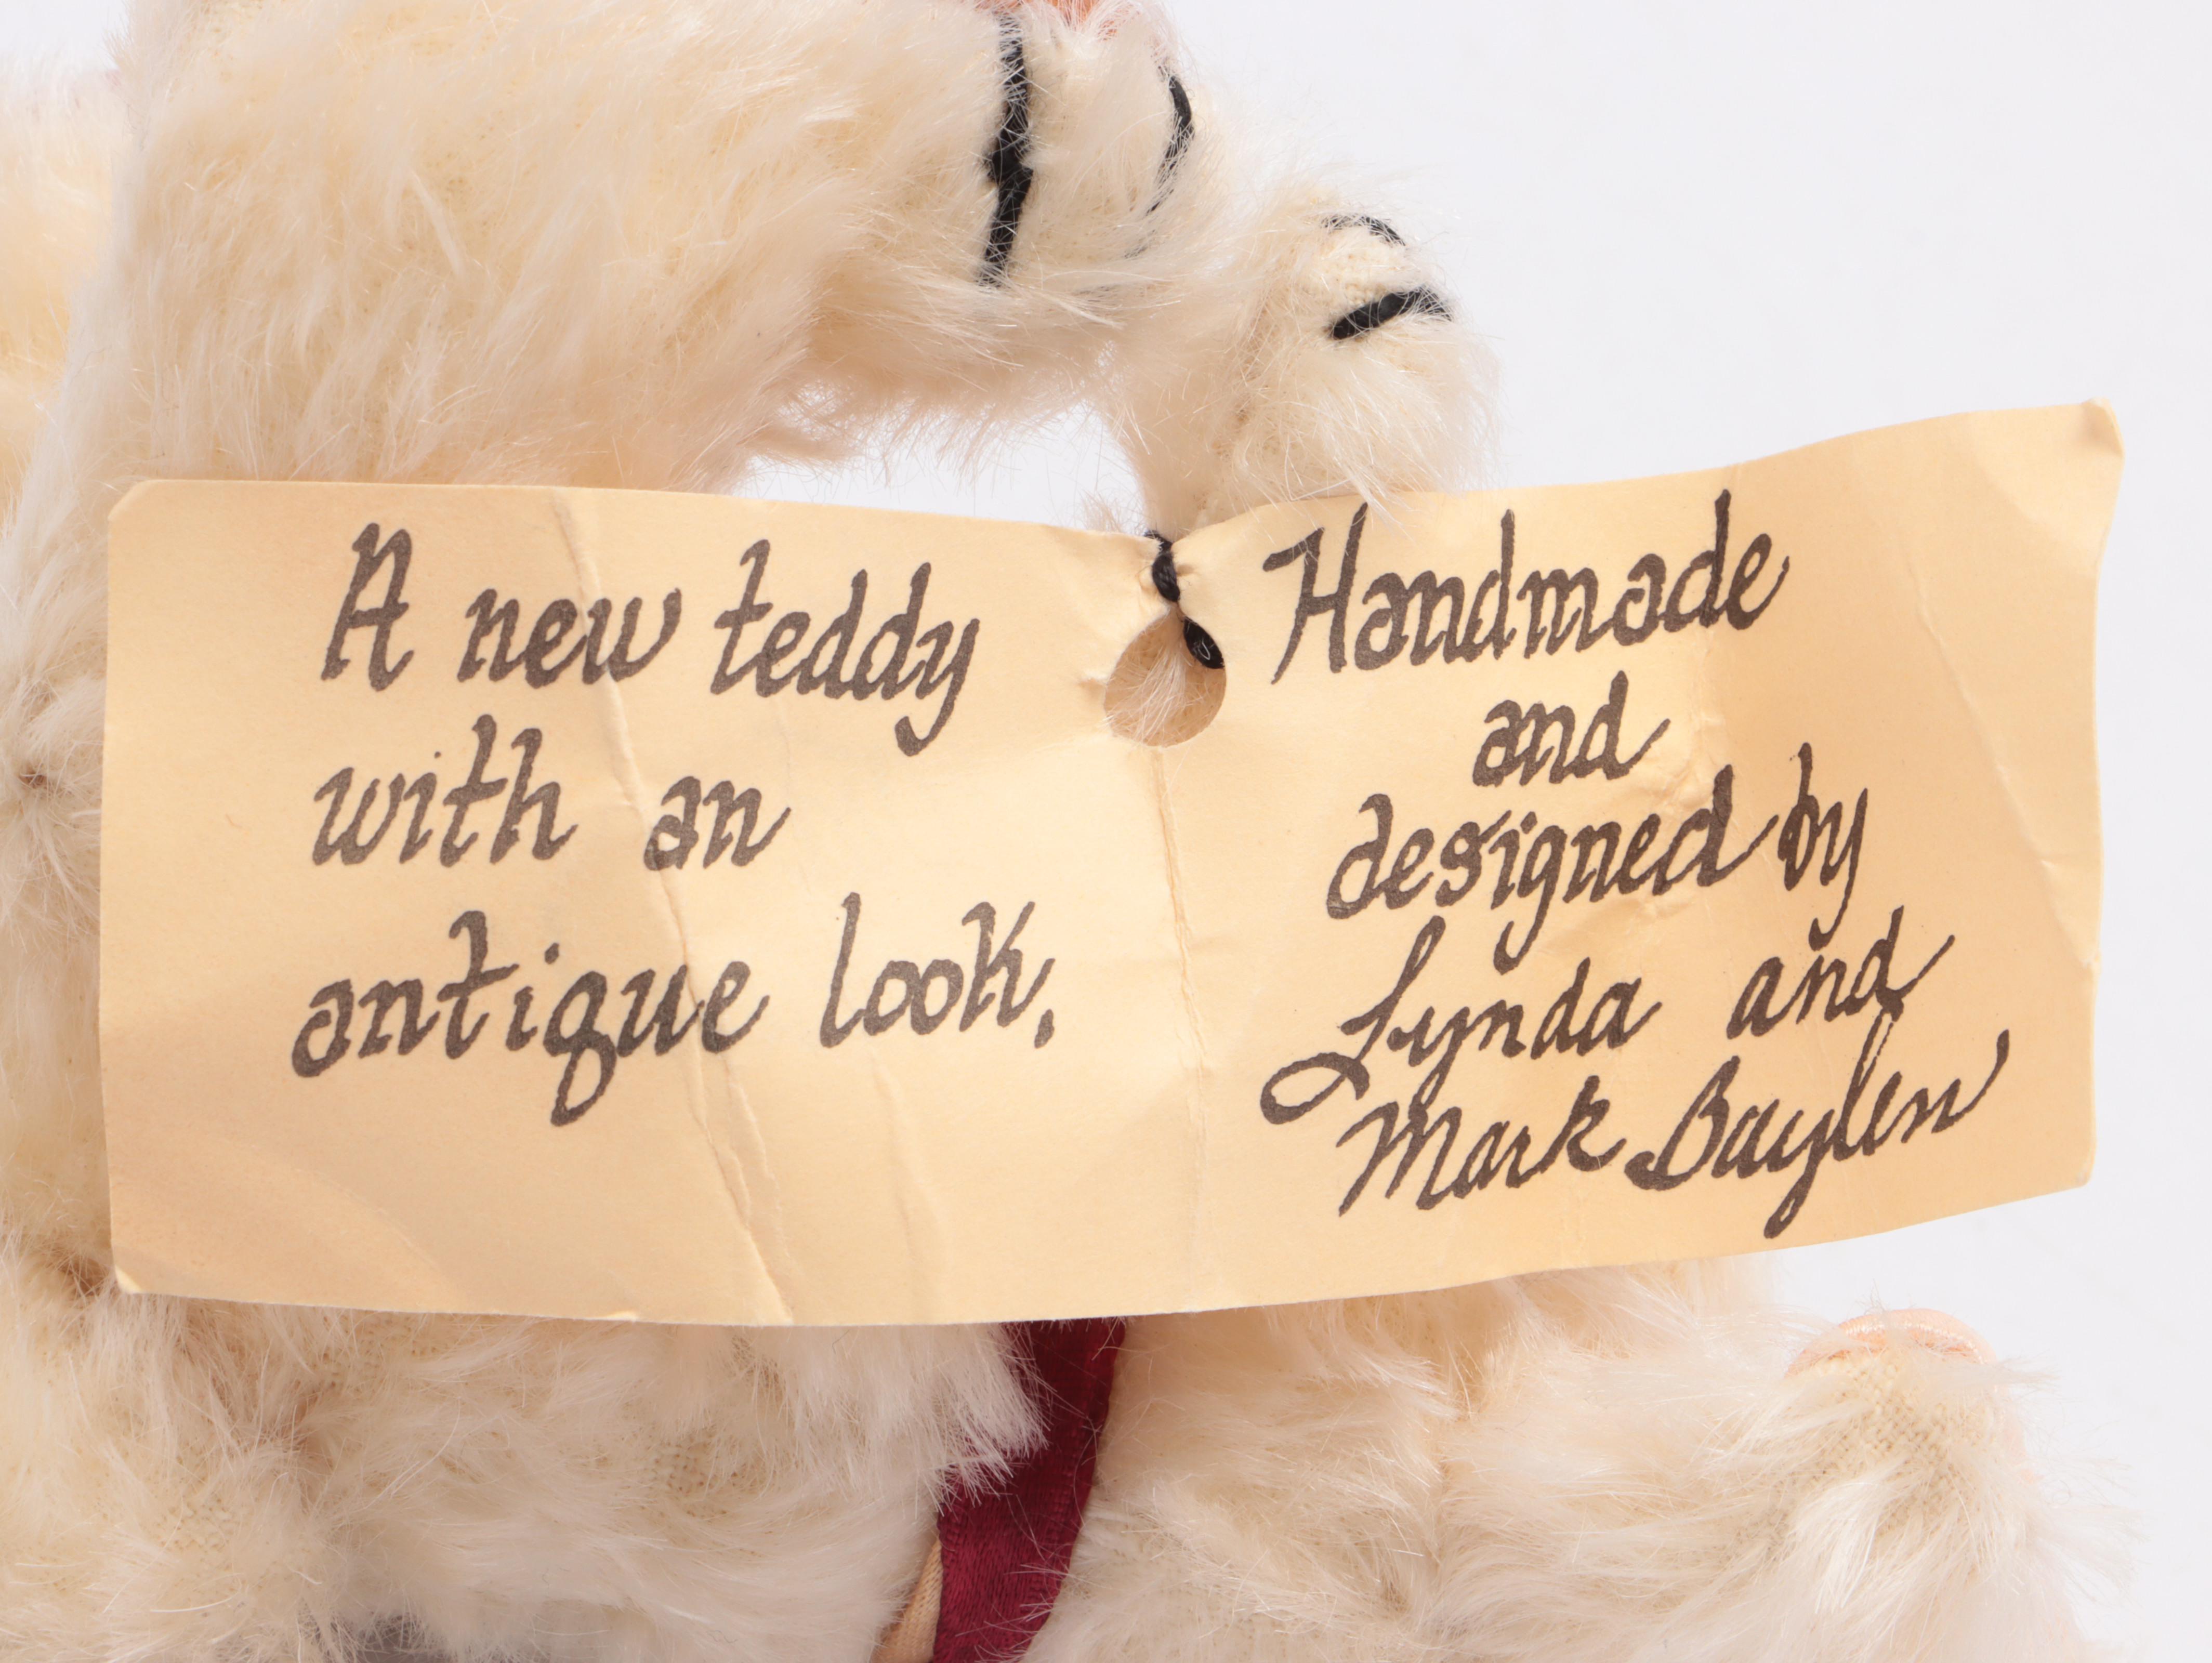 A new teddy
with an
antique look.
Handmade
and
designed by
Lynda and
Mark Baylen